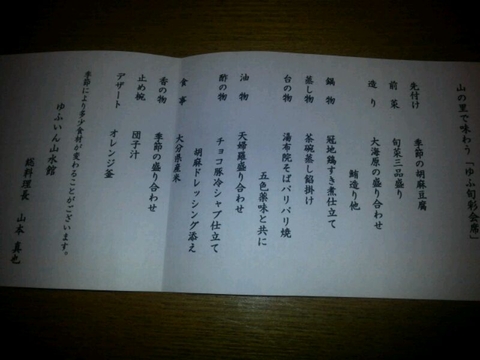 山の里で味わう「ゆふ旬彩会席」
先付け　季節の胡麻豆腐
前菜　旬菜三品盛り
造り　大海原の盛り合わせ
鯖造り他
鍋物　冠地鶏すき煮仕立て
蒸し物　茶碗蒸し餡掛け
台の物　湯布院そばパリパリ焼
五色薬味と共に
油物　天婦羅盛り合わせ
酢の物　チョコ豚冷シャブ仕立て
胡麻ドレッシング添え
食事　大分県産米
香の物　季節の盛り合わせ
止め椀　団子汁
デザート　オレンジ釜
季節により多少食材が変わることがございます。
ゆふいん山水館
総料理長　山本真也